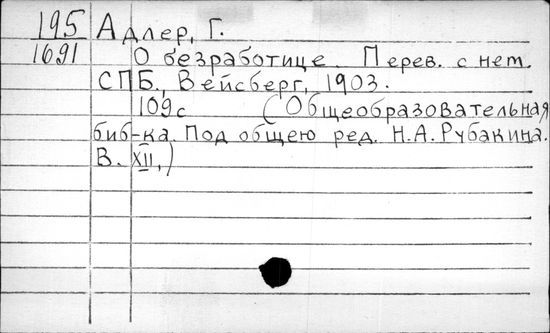 195 Адлер, Г.
1691 О безработице. Перев. с нем.
СПБ., Вейсберг, 1903.
109с (Общеобразовательная
биб-ка. Под общею ред. Н.А.Рубакина.
В. XII,)